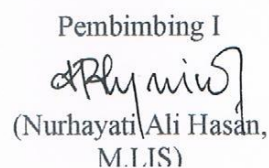 Pembimbing I
(Nurhayati Ali Hasan,
M.LIS)